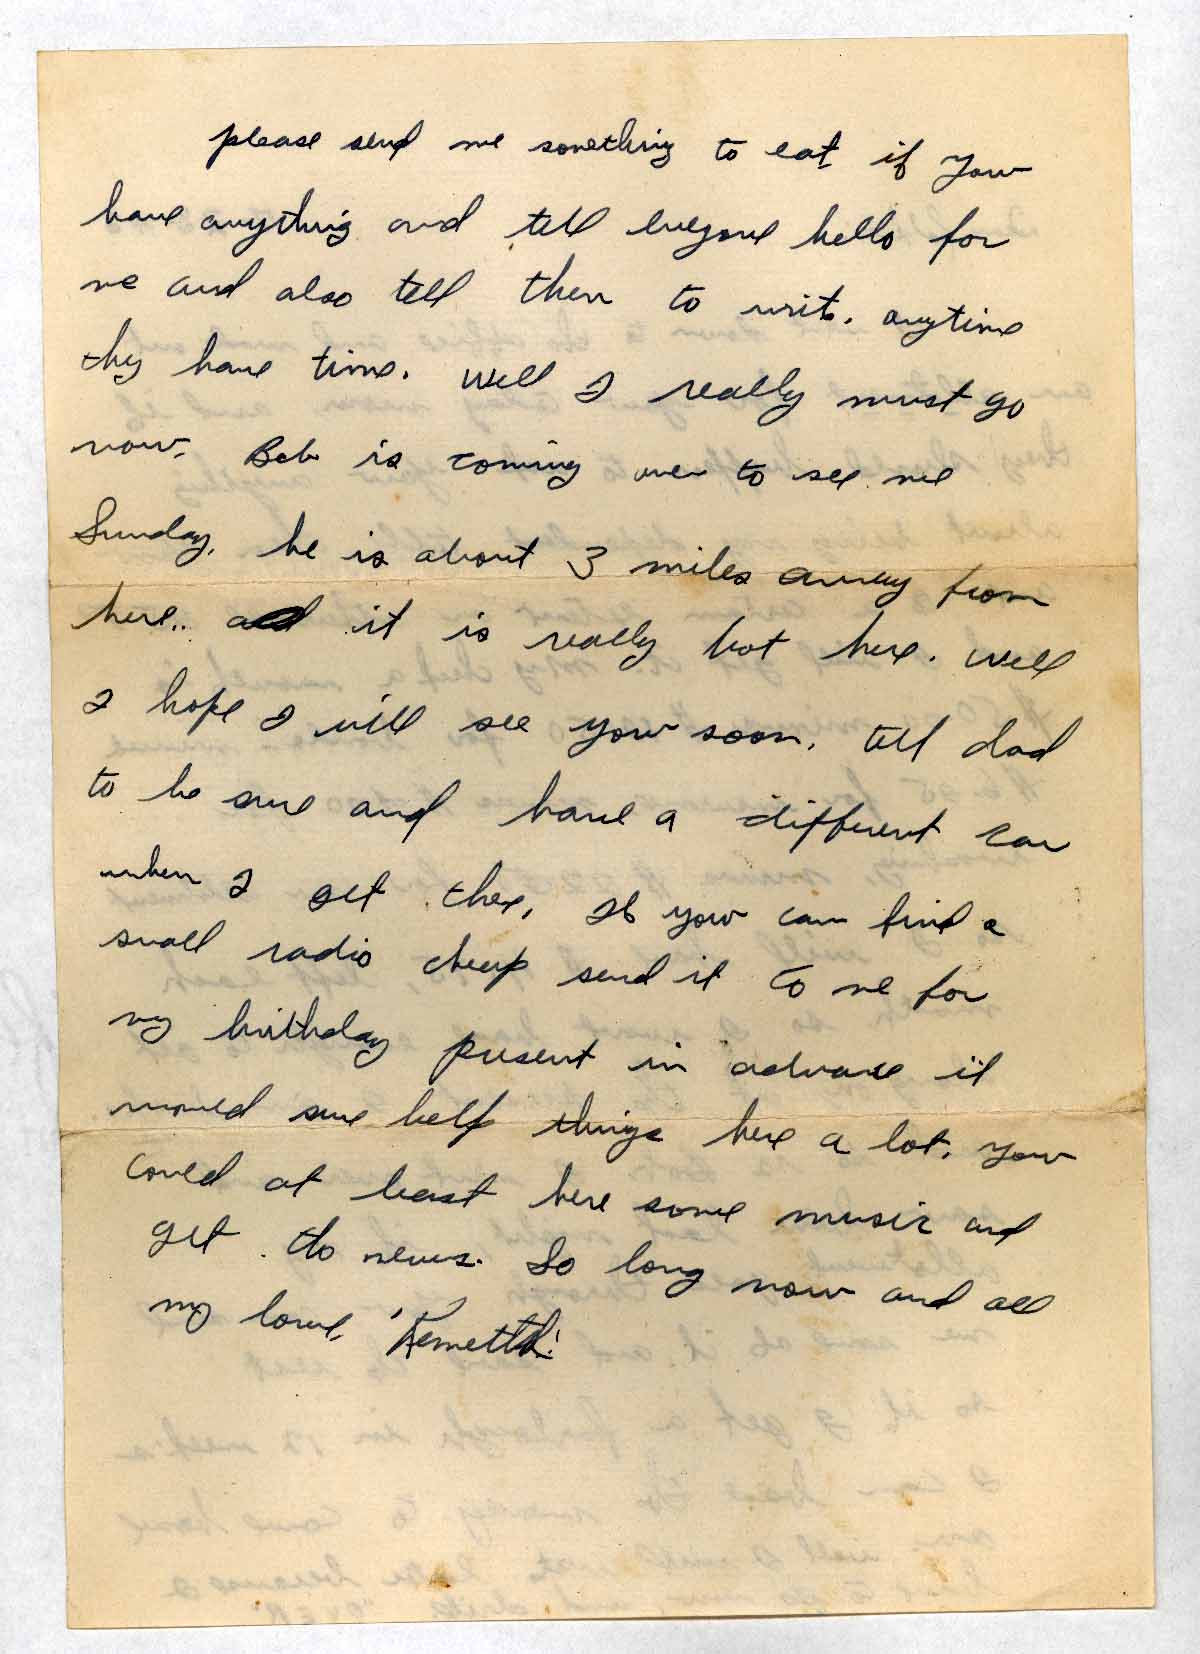 please send me something to eat if you
have anything and tell everyone hello for
me and also tell them to write. anytime
they have time. Well I really must go
now. Bob is coming over to see me
Sunday. he is about 3 miles away from
here.. and it is really hot here. Well
I hope I will see you soon. tell dad
to be sure and have a different car
when I get there, If you can find a
small radio cheap send it to me for
my birthday present in advance it
would sure help things here a lot. you
could at least here some music and
get the news. So long now and all
my love,